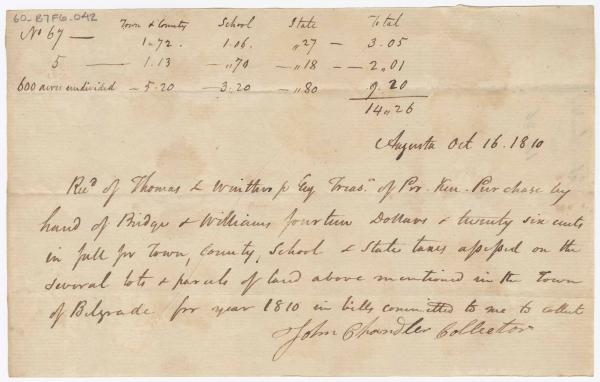 60-B7F6-042
Town & County School State Total
No 67 — 1.72. 1.06. "27 — 3.05
5 — 1.13 — "70 — "18 — — 2"01
600 acres undivided — 5.20 — 3.20 — "80 9.20
14"26
Augusta Oct 16. 1810
Recd of Thomas L Winthrop Esq Treasr. of Pro. Ken. Purchase by
hand of Bridge & Williams fourteen Dollars & twenty six cents
in full for Town, County, School & State taxes assessed on the
several lots & parcels of land above mentioned in the Town
of Belgrade for year 1810 in bills committed to me to collect
John Chandler Collector